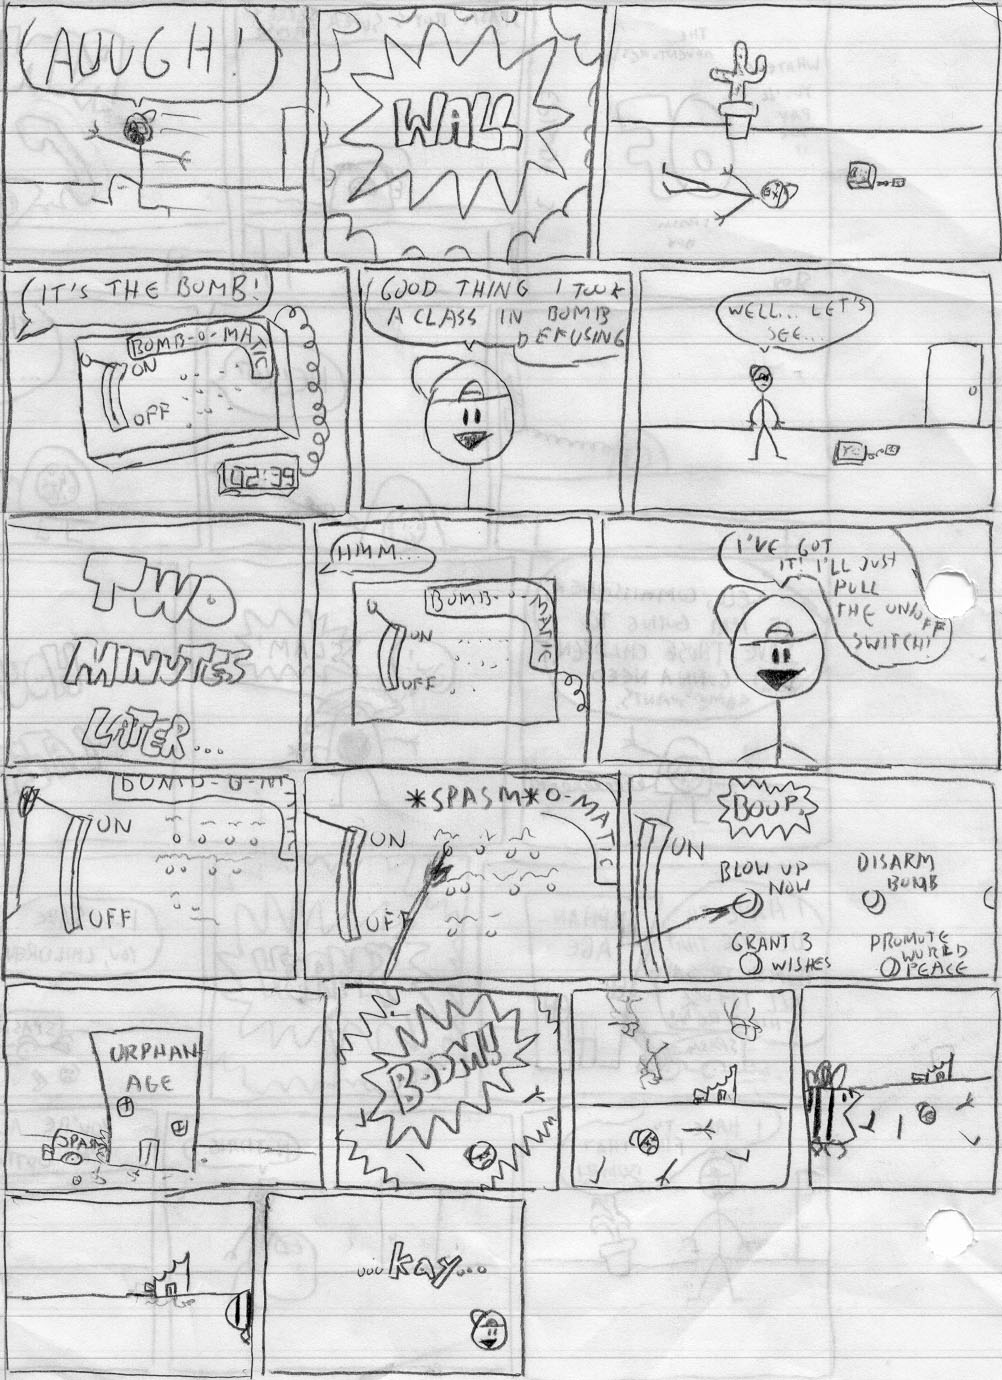 AUUGH!
WALL
IT'S THE BOMB!
BOMB-O-MATIC
ON
OFF
02:39
GOOD THING I TOOK
A CLASS IN BOMB
DEFUSING
WELL... LET'S
SEE...
TWO
MINUTES
LATER...
HMM...
BOMB-O-MATIC
ON
OFF
I'VE GOT
IT! I'LL JUST
PULL
THE ON/OFF
SWITCH!
BOMB-O-M
ON
OFF
*SPASM*O-MATIC
ON
OFF
BOUP.
ON
BLOW UP
NOW
DISARM
BOMB
GRANT 3
WISHES
PROMOTE
WORLD
PEACE
ORPHAN
AGE
SPAS
BOOM!
...kay...